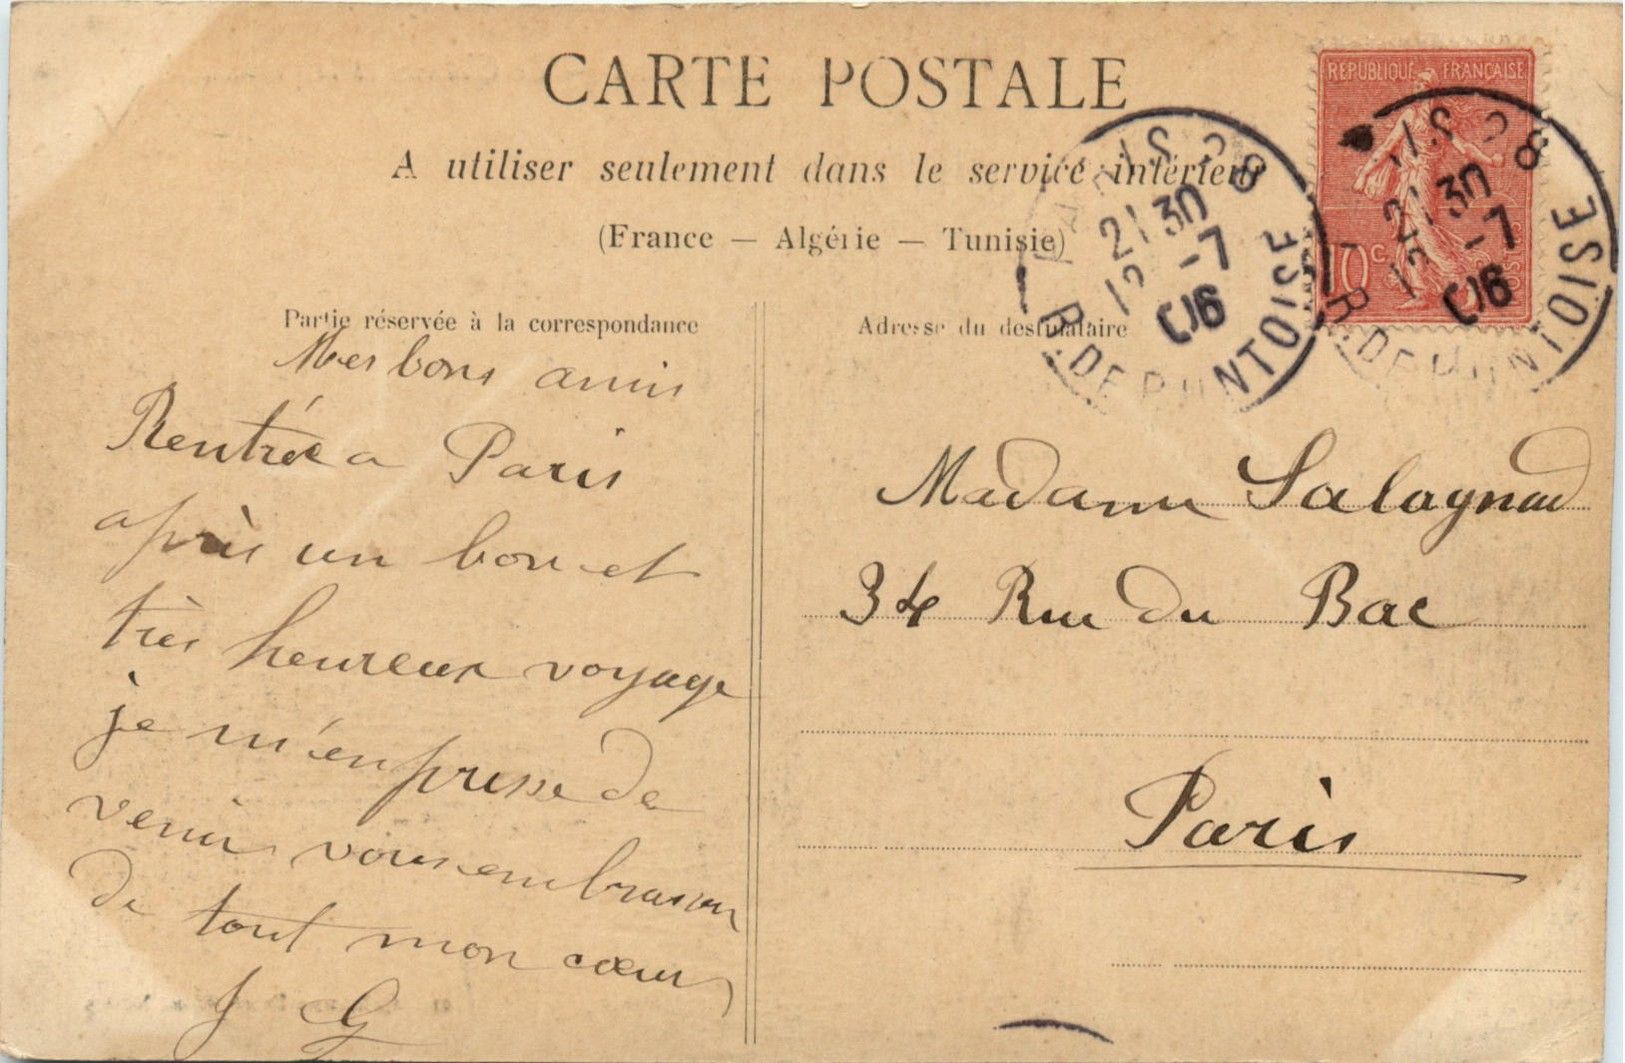 CARTE POSTALE
A utiliser seulement dans le service intérieur
(France — Algérie — Tunisie)
Partie réservée à la correspondance
Mes bons amis
Rentrée a Paris
après un bon et
très heureux voyage
je m'enpresse de
venir vous embrasser
de tout mon cœur
J G
REPUBLIQUE FRANÇAISE
10 c.
PARIS 28
R. DE PONTOISE
2130
12 -7
06
PARIS 28
R. DE PONTOISE
2130
12 -7
06
Adresse du destinataire
Madame Salagnad
34 Rue du Bac
Paris